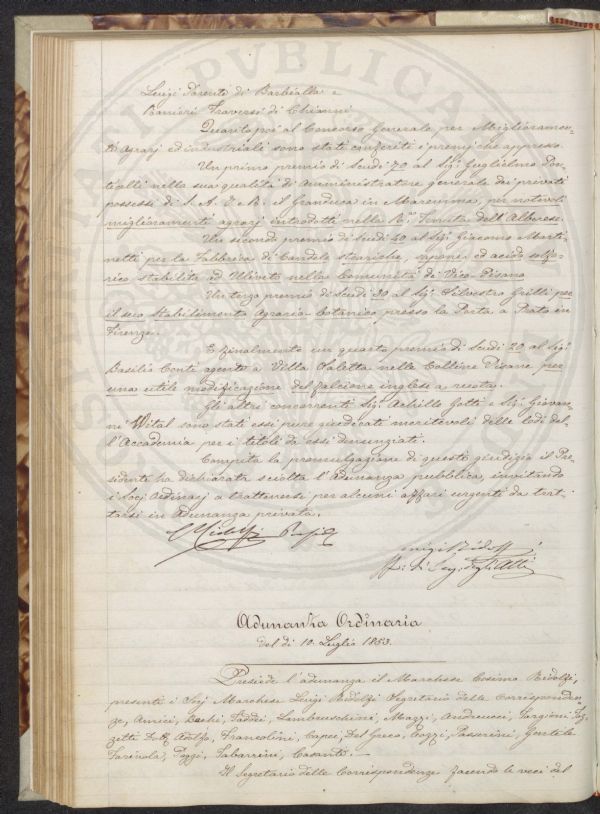 Luigi Parenti di Barbialla e
Ranieri Traversi di Chianni
Quanto poi al Concorso Generale per Miglioramen-
ti Agrarj ed industriali sono stati conferiti i premj che appresso.
Un primo premio di Scudi 70 al Sigr. Guglielmo Pon-
ticelli nella sua qualità di Amministratore generale dei privati
possessi di S. A. I. e R. il Granduca in Maremma, per notevoli
miglioramenti agrarj introdotti nella R.a Tenuta dell'Alberese.
Un secondo premio di Scudi 40 al Sigr. Giacomo Marti-
netti per la Fabbrica di Candele steariche, saponi ed acido solfo-
rico stabilita ad Uliveto nella Comunità di Vico-Pisano
Un terzo premio di Scudi 30 al Sigr. Silvestro Grilli per
il suo Stabilimento Agrario-botanico presso la Porta a Prato in
Firenze.
E finalmente un quarto premio di Scudi 20 al Sigr.
Basilio Conti agente a Villa Saletta nelle Colline Pisane per
una utile modificazione del falcione inglese a ruota.
Gli altri concorrenti Sigr. Achille Gotti e Sigr. Giovan-
ni Wital sono stati essi pure giudicati meritevoli delle lodi del-
l'Accademia per i titoli da essi denunziati.
Compita la promulgazione di questo giudizio il Pre-
sidente ha dichiarata sciolta l'Adunanza pubblica, invitando
i Socj Ordinarj a trattenersi per alcuni affari urgenti da trat-
tarsi in Adunanza privata.
C Ridolfi
Luigi Ridolfi
Adunanza Ordinaria
del dì 10. Luglio 1853.
Presiede l'adunanza il Marchese Cosimo Ridolfi,
presenti i Socj Marchese Luigi Ridolfi Segretario delle Corrisponden-
ze, Amici, Bechi, Taddei, Lambruschini, Mazzi, Andreucci, Targioni Toz-
zetti Dott. Adolfo, Francolini, Capei, Del Greco, Cozzi, Passerini, Gentile
Farinola, Poggi, Tabarrini, Casanti.
Il Segretario delle Corrispondenze facendo le veci del